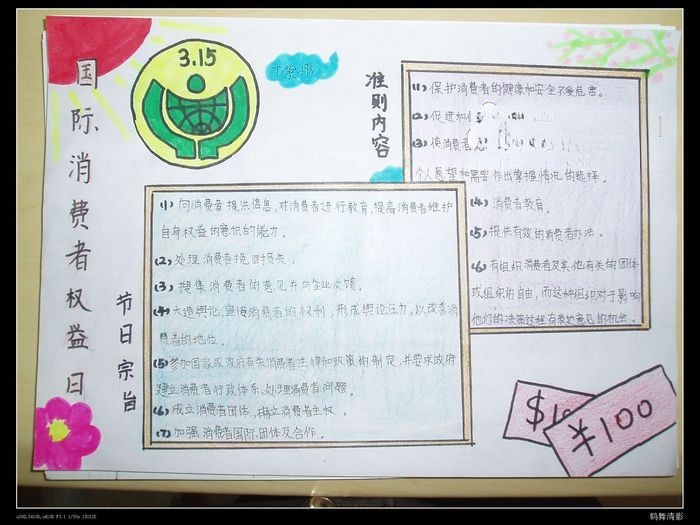 国际消费者权益日
3.15
准则内容
(1) 保护消费者的健康和安全不受危害。
(2) 促进和
(3) 使消费者
个人愿望和需要作出掌握情况的选择。
(4) 消费者教育。
(5) 提供有效的消费者办法。
(6) 有组织消费者及其他有关的团体
或组织的自由,而这种组织对于影响
他们的决策过程有表达意见的机会。
节日宗旨
(1) 向消费者提供信息,对消费者进行教育,提高消费者维护
自身权益的意识的能力。
(2) 处理消费者 挽回损失。
(3) 搜集消费者的意见并向企业反馈。
(4) 大造舆论,宣传消费者的权利,形成舆论压力,以改善消
费者的地位。
(5) 参加国家或政府有关消费者法律和政策的制定,并要求政府
建立消费者行政体系,处理消费者问题。
(6) 成立消费者团体,确立消费者主权。
(7) 加强消费者国际团体及合作。
$1
¥100
鹤舞清影